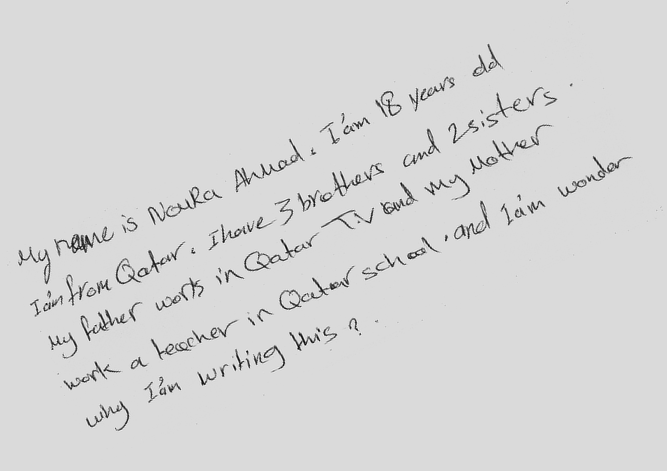 My name is NouRa Ahmad. I'am 18 years old
I'am from Qatar. I have 3 brothers and 2 sisters.
My father works in Qatar T.V and my Mother
work a teacher in Qatar school. and I'am wonder
why I'am writing this?.